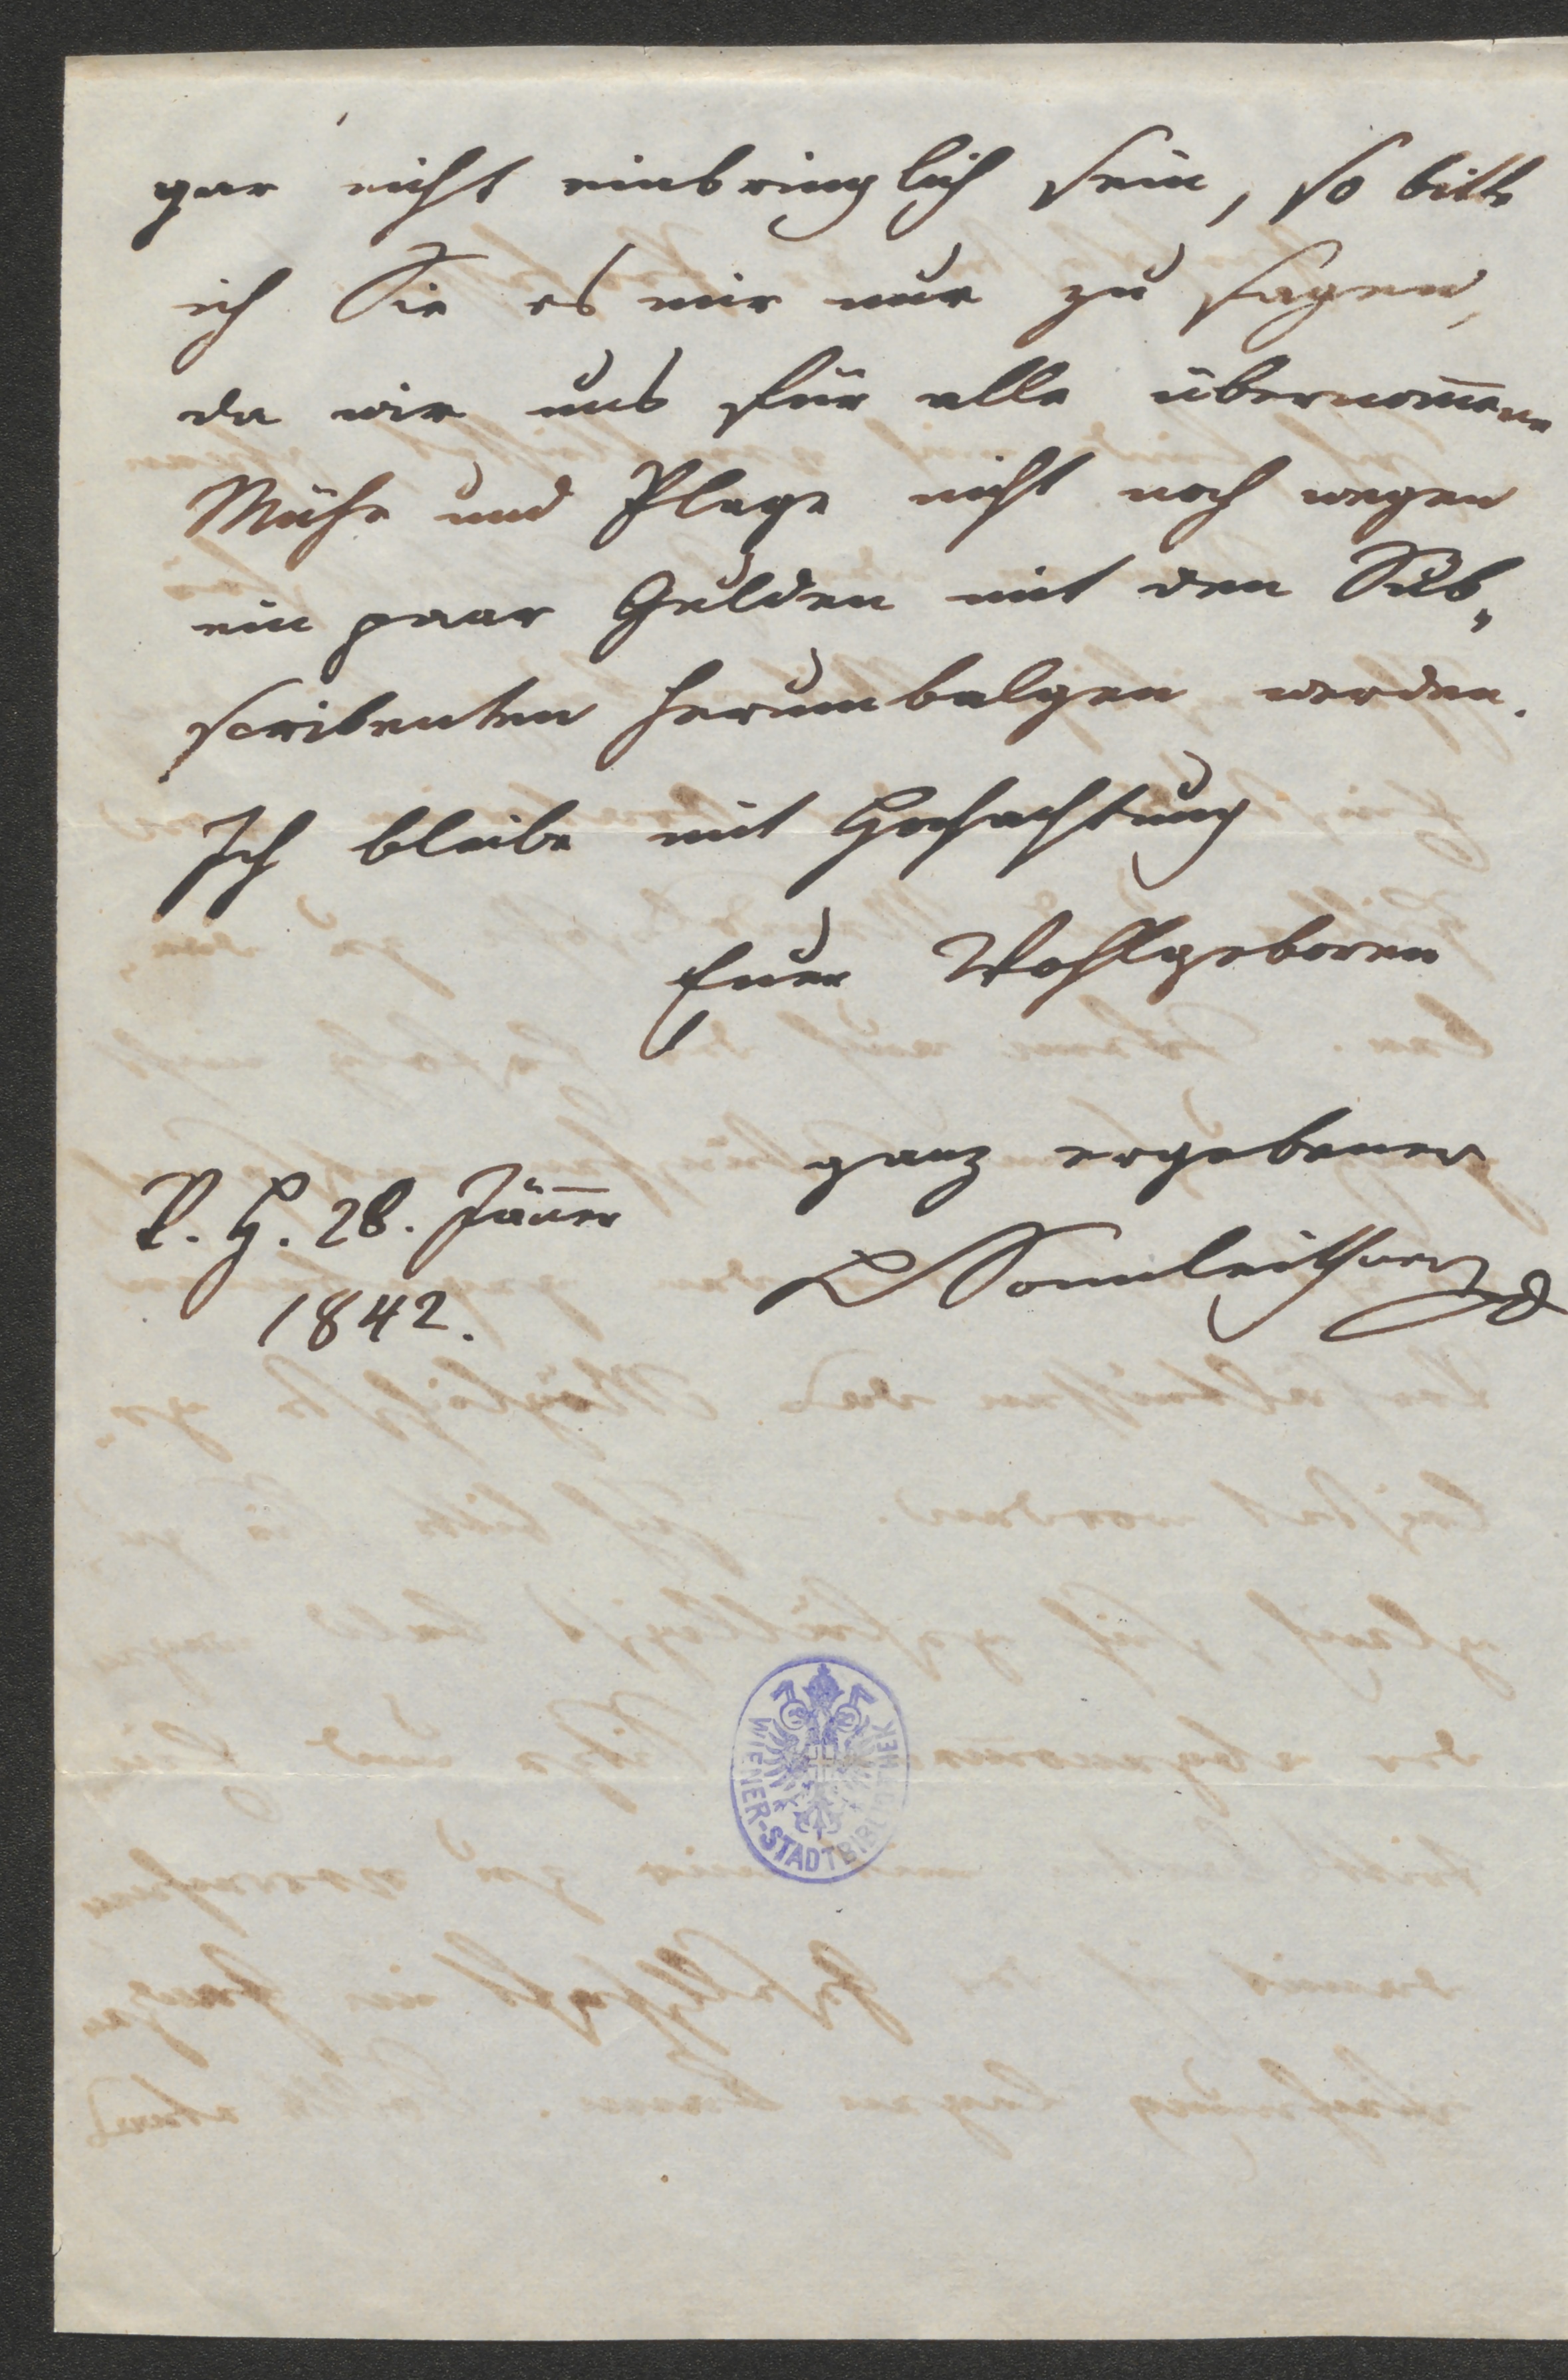 gar nicht einbringlich sein, so bitte
ich Sie es mir nur zu sagen,
da wir uns für alle übernom̅ene
Mühe und Plage nicht noch wegen
ein paar Gulden mit den Sub„
scribenten herumbalgen werden.
Ich bleibe mit Hochachtung
Euer Wohlgeboren
ganz ergebener
V. H. 28. Jän̅er
1842.
L Sonnleithner
WIENER-STADTBIBLIOTHEK